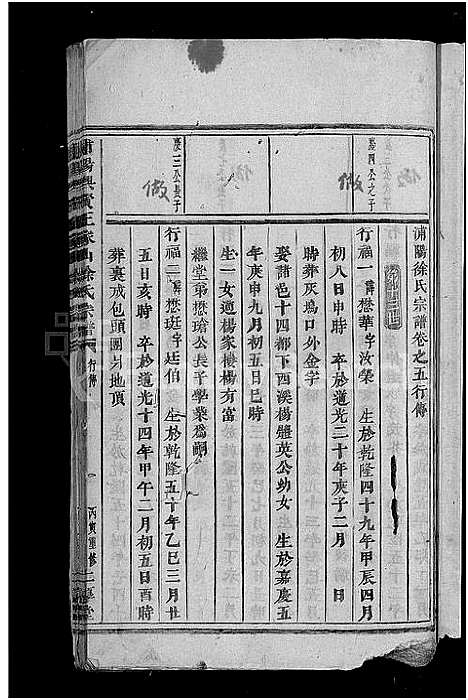 浦陽徐氏宗譜卷之五行傳
基四公之子
行福一 諱懋華字汝榮 生於乾隆四十九年甲辰四月
初八日申時 卒於道光二十年庚子二月 日
時葬灰塢口外金字
娶諸邑十四都下西溪楊體英公幼女 生於嘉慶五
年庚申九月初五日巳時
生一女適楊家樓楊方富
繼堂弟懋瑲公長子學業爲嗣
基三公長子
行福二 諱懋珽字廷伯 生於乾隆五十年乙巳三月廿
五日亥時 卒於道光十四年甲午二月初五日酉時
葬裏戒包頭園外地頂
浦陽興賢王家山徐氏宗譜
行傳
丙寅重修